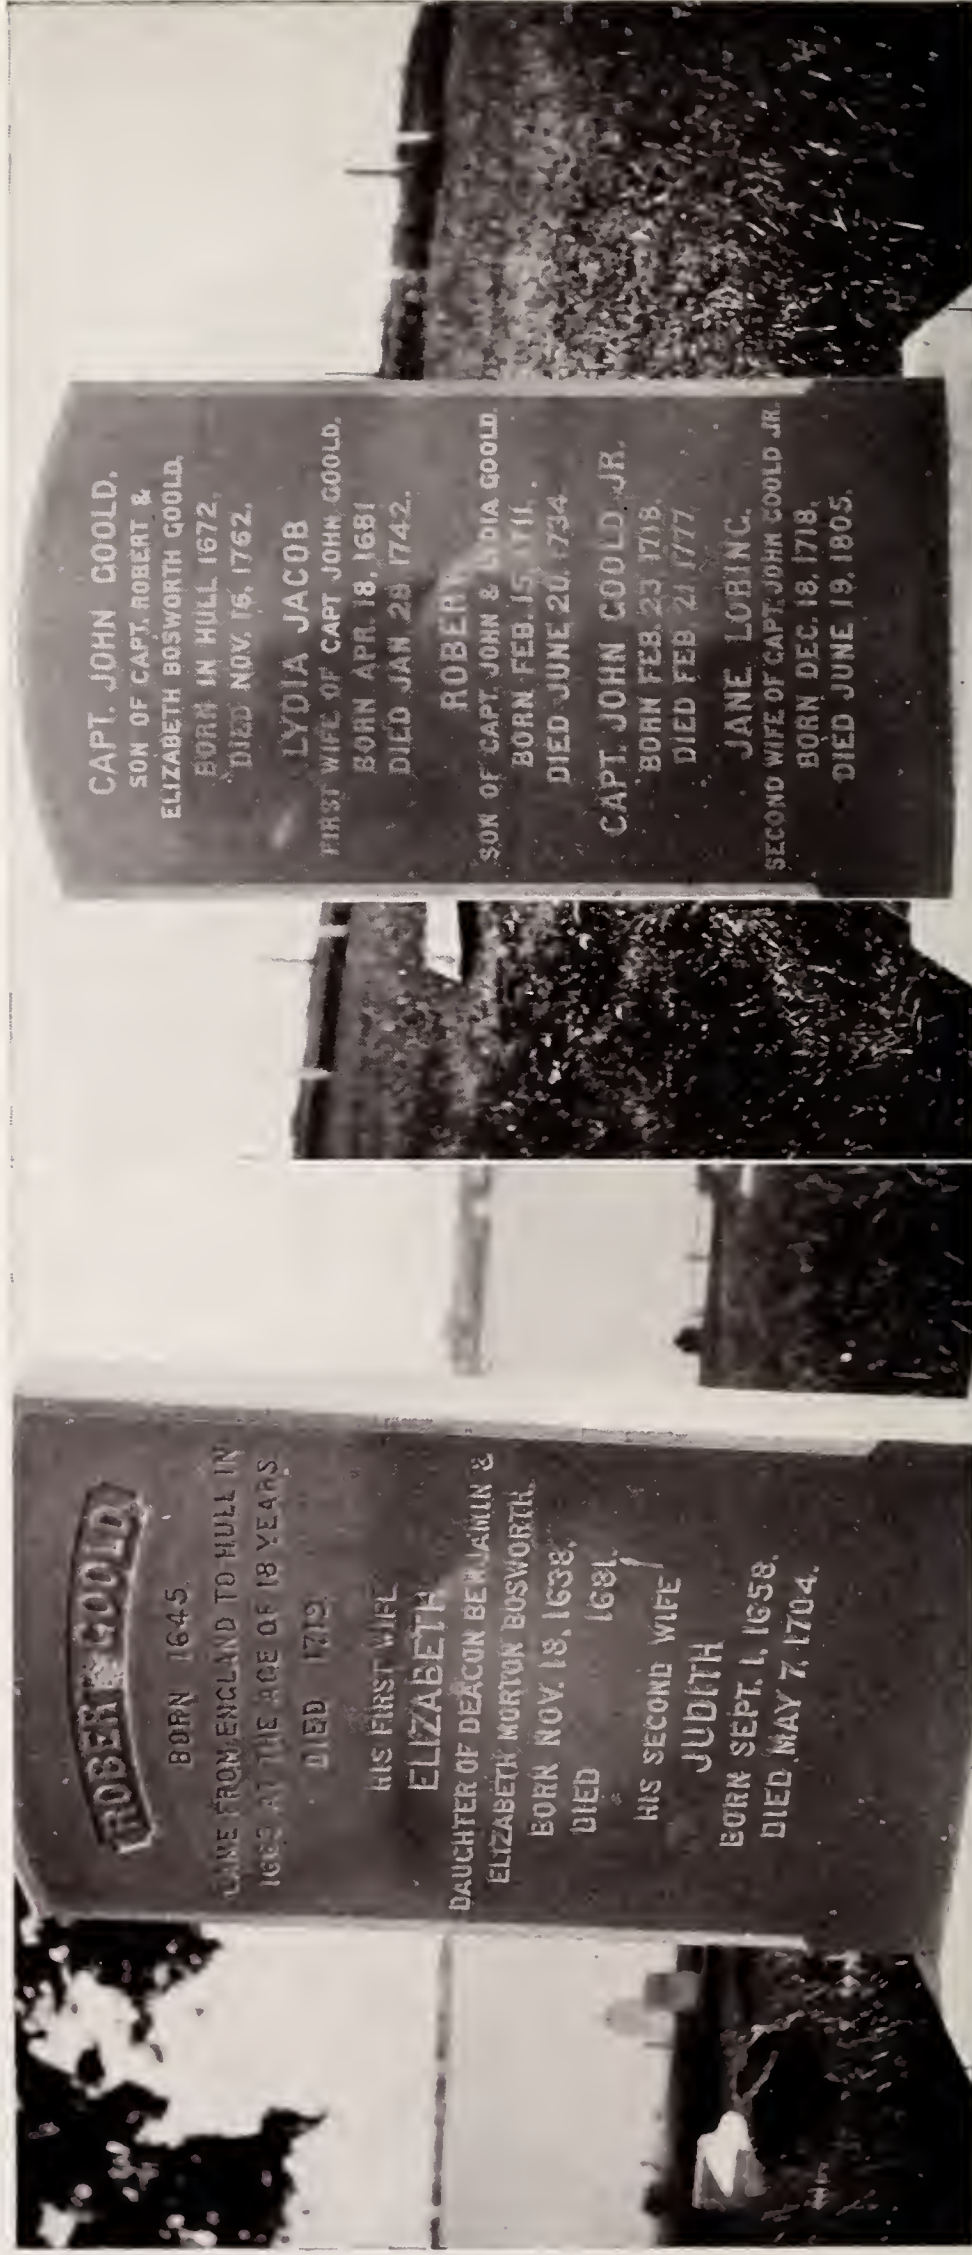 ROBERT GOOLD
BORN 1645
CAME FROM ENGLAND TO HULL IN
1663 AT THE AGE OF 18 YEARS
DIED 1719.
HIS FIRST WIFE
ELIZABETH
DAUGHTER OF DEACON BENJAMIN &
ELIZABETH MORTON BOSWORTH.
BORN NOV. 18, 1638.
DIED 1681.
HIS SECOND WIFE
JUDITH
BORN SEPT. 1, 1658.
DIED MAY 7, 1704.
CAPT. JOHN GOOLD,
SON OF CAPT. ROBERT &
ELIZABETH BOSWORTH GOOLD.
BORN IN HULL 1672,
DIED NOV. 16, 1762.
LYDIA JACOB
FIRST WIFE OF CAPT. JOHN GOOLD.
BORN APR. 18, 1681
DIED JAN 1742.
ROBERT
SON OF CAPT. JOHN & LYDIA GOOLD.
BORN FEB. 15, 1711.
DIED JUNE 20, 1734
CAPT. JOHN GOOLD, JR.
BORN FEB. 23 1718.
DIED FEB. 21 1777.
JANE LORING.
SECOND WIFE OF CAPT. JOHN GOOLD JR.
BORN DEC. 18, 1718.
DIED JUNE 19, 1805.